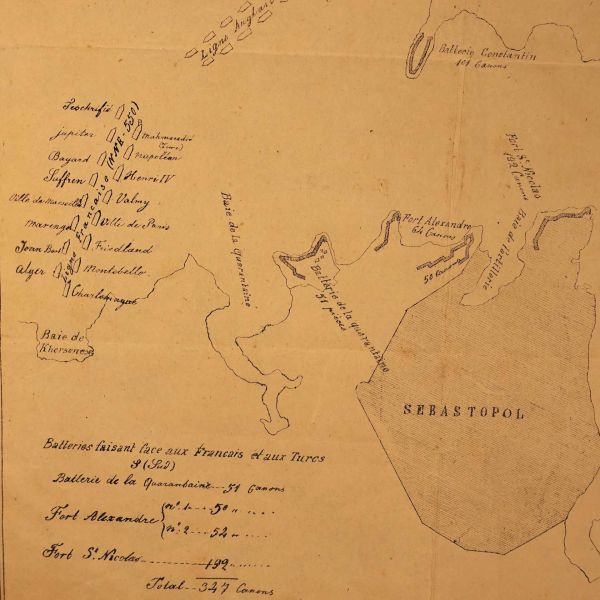 Ligne Anglaise
Batterie Constantin
101 Canons
Teschrifié
Jupiter
Mahmoudié
(Turc)
Bayard
Napoléon
Suffren
Henri IV
Ville de Marseille
Valmy
Marengo
Ville de Paris
Jean Bart
Friedland
Alger
Montebello
Charlemagne
Ligne Française (N.N.E. 550)
Baie de la Quarantaine
Fort St. Nicolas
192 Canons
Fort Alexandre
64 Canons
Baie de l'artillerie
50 Canons
Batterie de la Quarantaine
51 pièces
Baie de
Khersonese
SEBASTOPOL
Batteries faisant face aux Francais et aux Turcs
(Sud)
Batterie de la Quarantaine 51 Canons
Fort Alexandre
nº 1 50 "
nº 2 54 "
Fort St. Nicolas 192 "
Total 347 Canons